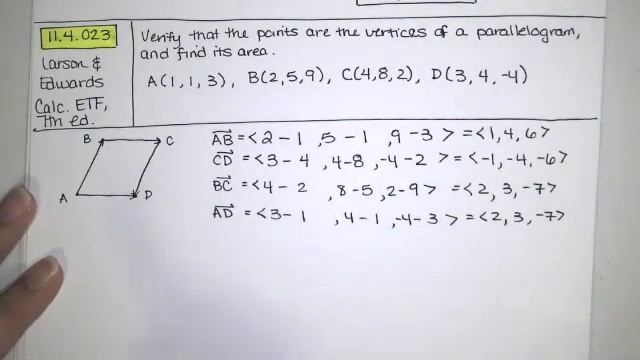 11.4.023
Larson &
Edwards
Calc. ETF,
7th ed.
Verify that the points are the vertices of a parallelogram,
and find its area.
A(1, 1, 3), B(2,5,9), C(4,8,2), D(3, 4, -4)
B C
A D
AB = <2 - 1, 5 - 1, 9 - 3> = <1, 4, 6>
CD = <3 - 4, 4-8, -4 - 2> = <-1, -4, -6>
BC = <4 - 2, 8-5, 2-9> = <2, 3, -7>
AD = <3- 1, 4 - 1, -4 - 3> = <2, 3, -7>